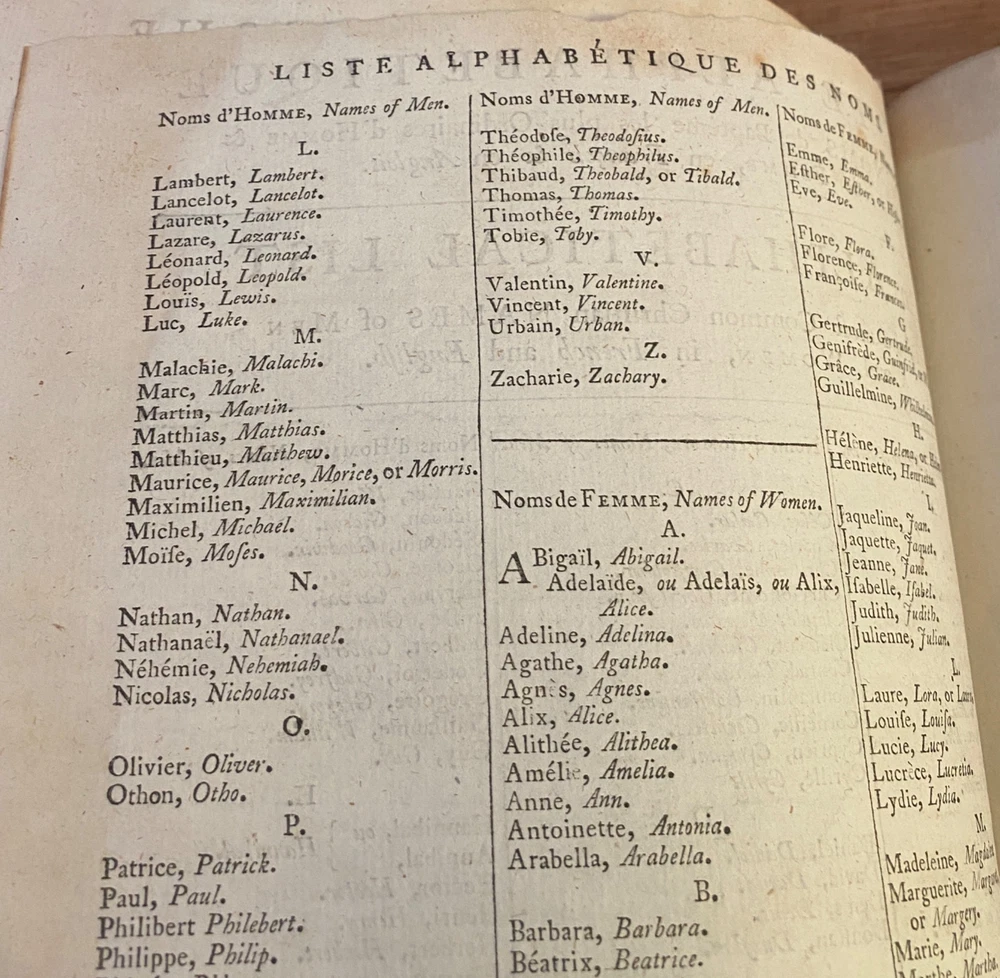 LISTE ALPHABÉTIQUE DES NOMS
Noms d'HOMME, Names of Men.
L.
Lambert, Lambert.
Lancelot, Lancelot.
Laurent, Laurence.
Lazare, Lazarus.
Léonard, Leonard.
Léopold, Leopold.
Louïs, Lewis.
Luc, Luke.
M.
Malachie, Malachi.
Marc, Mark.
Martin, Martin.
Matthias, Matthias.
Matthieu, Matthew.
Maurice, Maurice, Morice, or Morris.
Maximilien, Maximilian.
Michel, Michael.
Moïſe, Moſes.
N.
Nathan, Nathan.
Nathanaël, Nathanael.
Néhémie, Nehemiah.
Nicolas, Nicholas.
O.
Olivier, Oliver.
Othon, Otho.
P.
Patrice, Patrick.
Paul, Paul.
Philibert Philebert.
Philippe, Philip.
Noms d'HOMME, Names of Men.
Théodoſe, Theodoſius.
Théophile, Theophilus.
Thibaud, Theobald, or Tibald.
Thomas, Thomas.
Timothée, Timothy.
Tobie, Toby.
V.
Valentin, Valentine.
Vincent, Vincent.
Urbain, Urban.
Z.
Zacharie, Zachary.
Noms de FEMME, Names of Women.
A.
ABigaïl, Abigail.
Adelaïde, ou Adelaïs, ou Alix,
Alice.
Adeline, Adelina.
Agathe, Agatha.
Agnès, Agnes.
Alix, Alice.
Alithée, Alithea.
Amélie, Amelia.
Anne, Ann.
Antoinette, Antonia.
Arabella, Arabella.
B.
Barbara, Barbara.
Béatrix, Beatrice.
Noms de FEMME,
Emme, Emma.
Eſther, Eſther, or
Eve, Eve.
F.
Flore, Flora.
Florence, Florence.
Françoiſe, Frances.
G
Gertrude, Gertrude.
Genifrède,
Grâce, Grace.
Guillelmine,
H.
Hélène, Helena, or
Henriette, Henrietta.
I.
Jaqueline, Joan.
Jaquette, Jaquet.
Jeanne, Jane.
Iſabelle, Iſabel.
Judith, Judith.
Julienne, Julian.
L.
Laure, Lora, or
Louiſe, Louiſa.
Lucie, Lucy.
Lucrèce, Lucretia.
Lydie, Lydia.
M.
Madeleine,
Marguerite,
or Margery.
Marie, Mary.
Marthe, Martha.